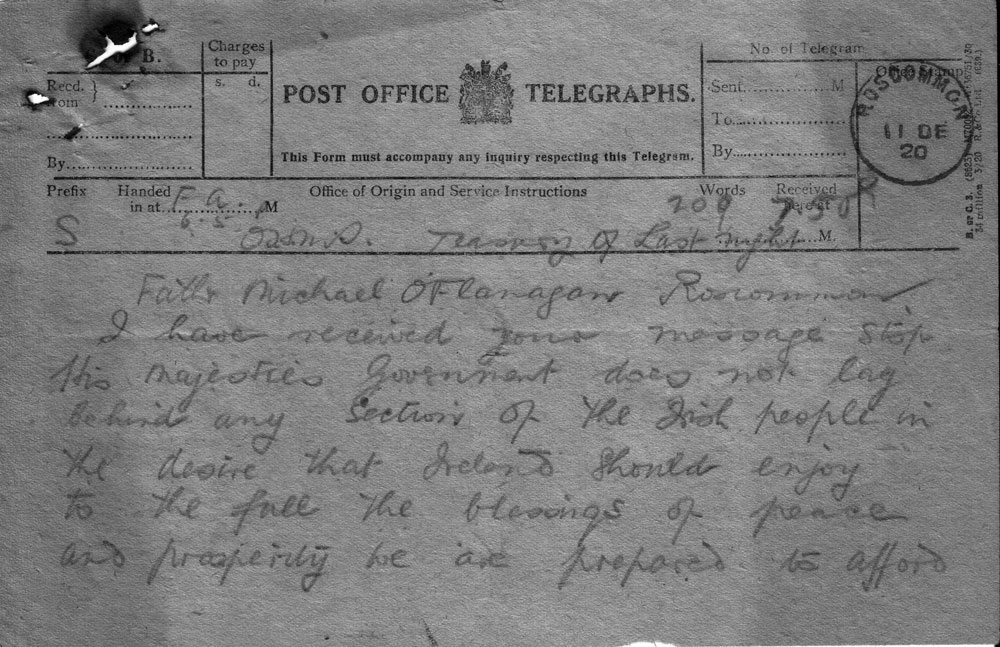 or B.
Charges
to pay
s. d.
Recd.
from
By
POST OFFICE TELEGRAPHS.
This Form must accompany any inquiry respecting this Telegram.
No. of Telegram
Sent M
To
By
Office Stamp
ROSCOMMON
11 DE
20
Prefix Handed in at M Office of Origin and Service Instructions Words Received here at M.
209
S OHMS. of Last night
Fathr Michael O'Flanagan Roscommon
I have received your message stop
His Majesties Government does not lag
behind any section of the Irish people in
the desire that Ireland should enjoy
to the full the blessings of peace
and prosperity we are prepared to afford